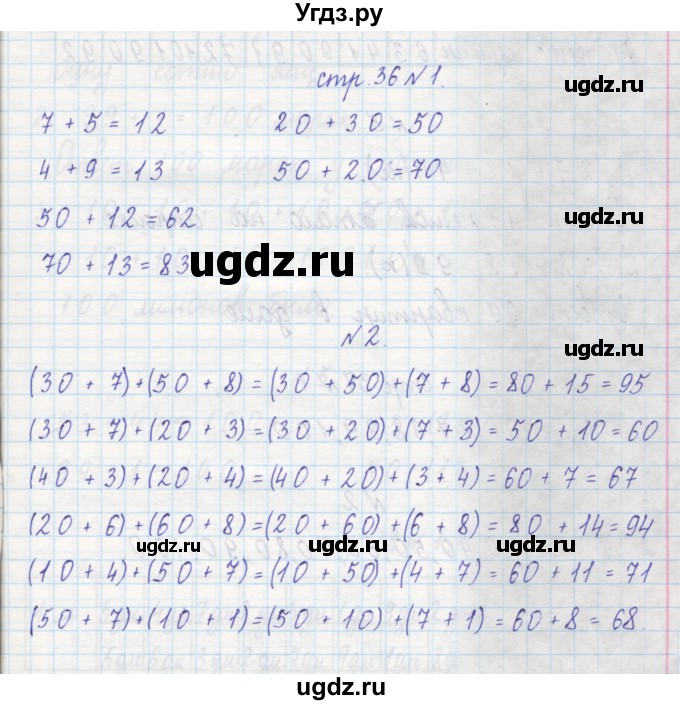 Угдз.ру
стр. 36 №1.
7 + 5 = 12 20 + 30 = 50
4 + 9 = 13 50 + 20 = 70
50 + 12 = 62
70 + 13 = 83
ugdz.ru
ugdz.ru
ugdz.ru
№2.
(30 + 7) + (50 + 8) = (30 + 50) + (7 + 8) = 80 + 15 = 95
(30 + 7) + (20 + 3) = (30 + 20) + (7 + 3) = 50 + 10 = 60
(40 + 3) + (20 + 4) = (40 + 20) + (3 + 4) = 60 + 7 = 67
(20 + 6) + (60 + 8) = (20 + 60) + (6 + 8) = 80 + 14 = 94
ugdz.ru ugdz.ru ugdz.ru
(10 + 4) + (50 + 7) = (10 + 50) + (4 + 7) = 60 + 11 = 71
(50 + 7) + (10 + 1) = (50 + 10) + (7 + 1) = 60 + 8 = 68.
ugdz.ru